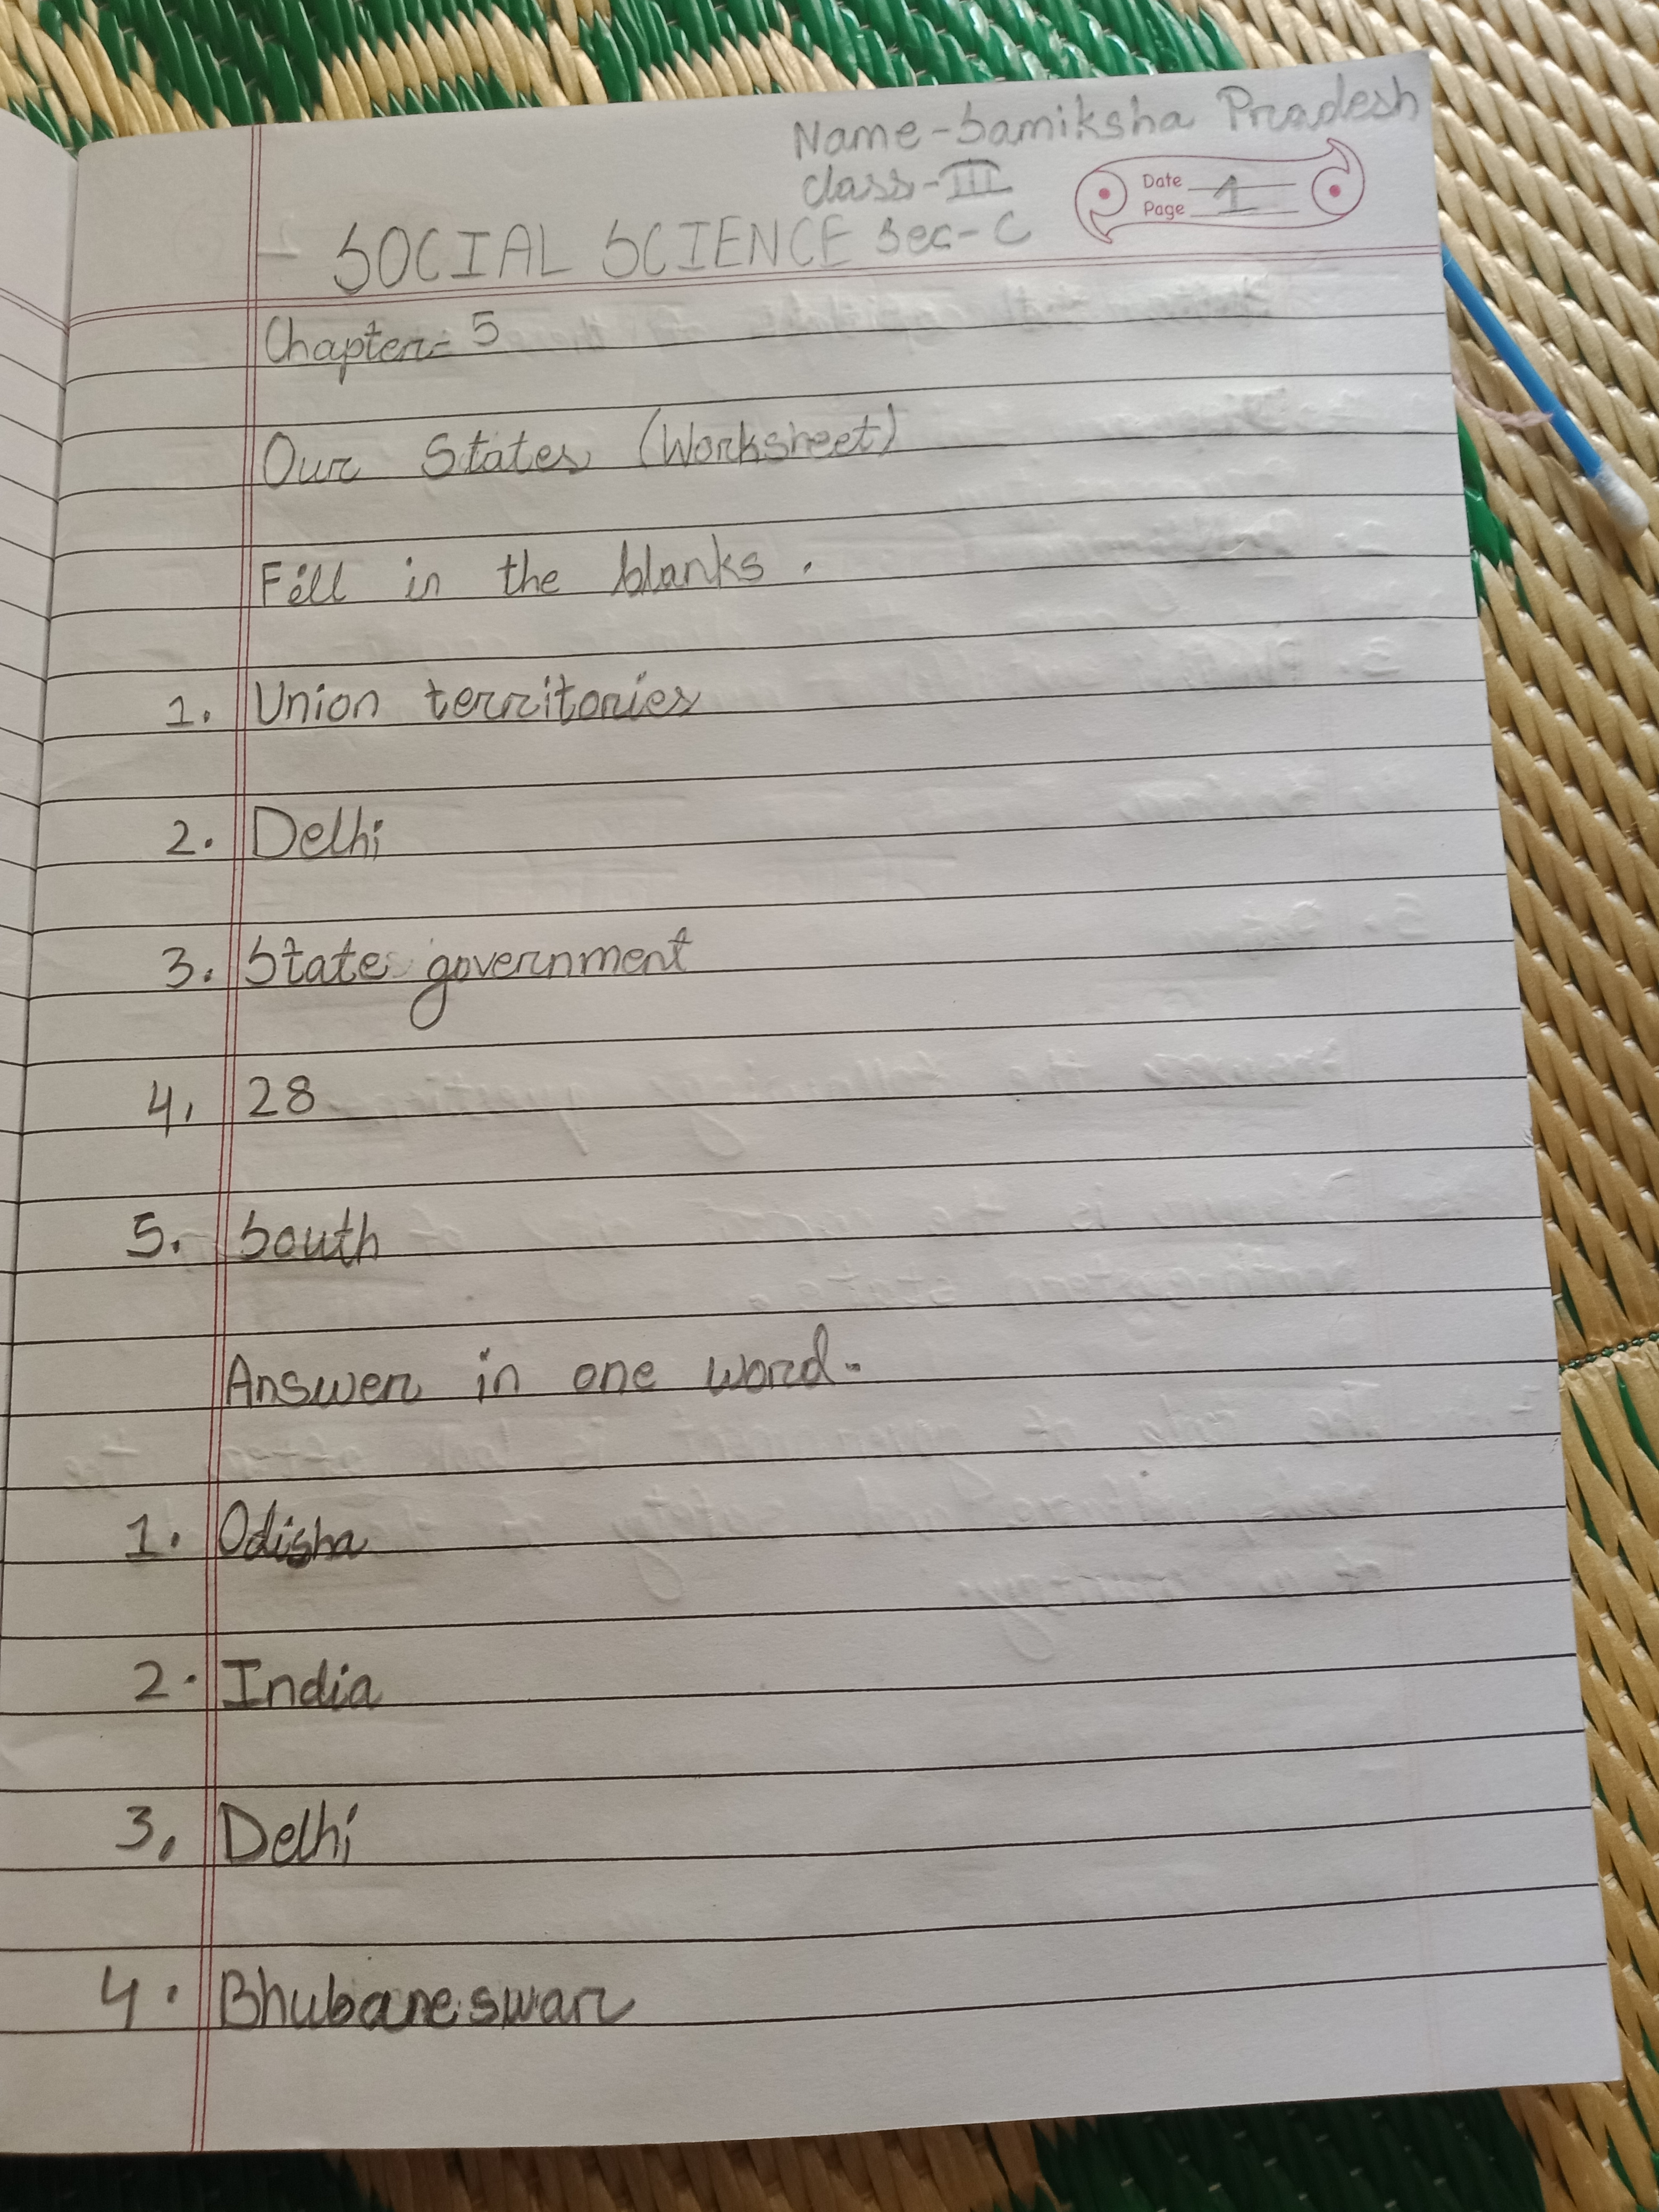 Name-Samiksha Pradesh
Class-III
Date
Page 1
SOCIAL SCIENCE Sec-C
Chapter-5
Our States (Worksheet)
Fill in the blanks.
1. Union territories
2. Delhi
3. State government
4. 28
5. South
Answer in one word.
1. Odisha
2. India
3. Delhi
4. Bhubaneswar